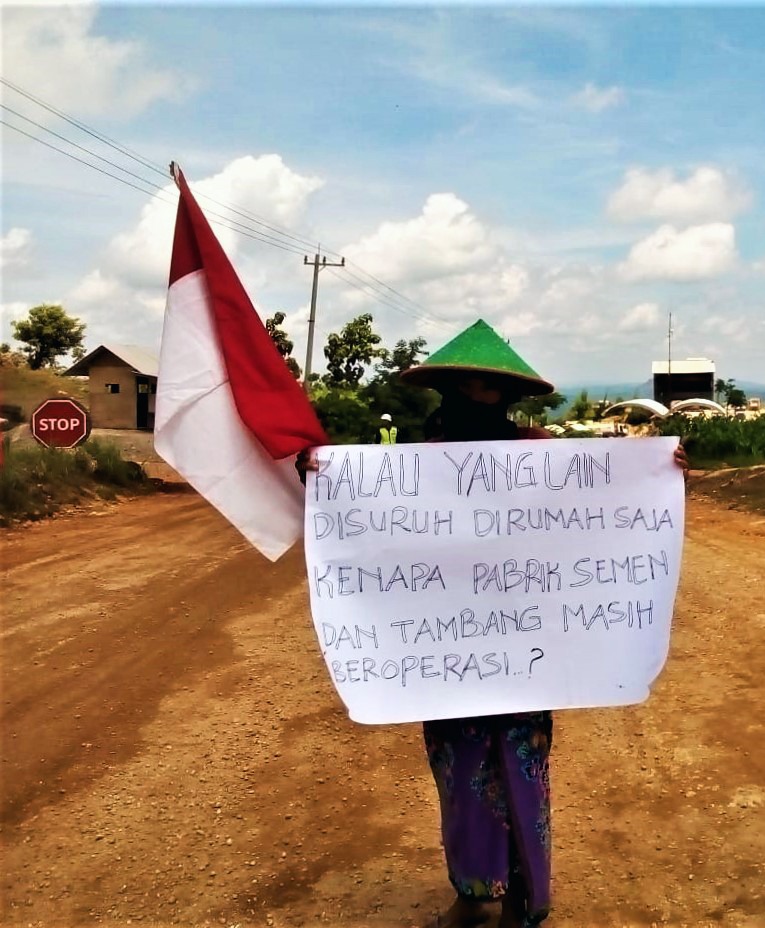 STOP
KALAU YANG LAIN
DISURUH DIRUMAH SAJA
KENAPA PABRIK SEMEN
DAN TAMBANG MASIH
BEROPERASI..?